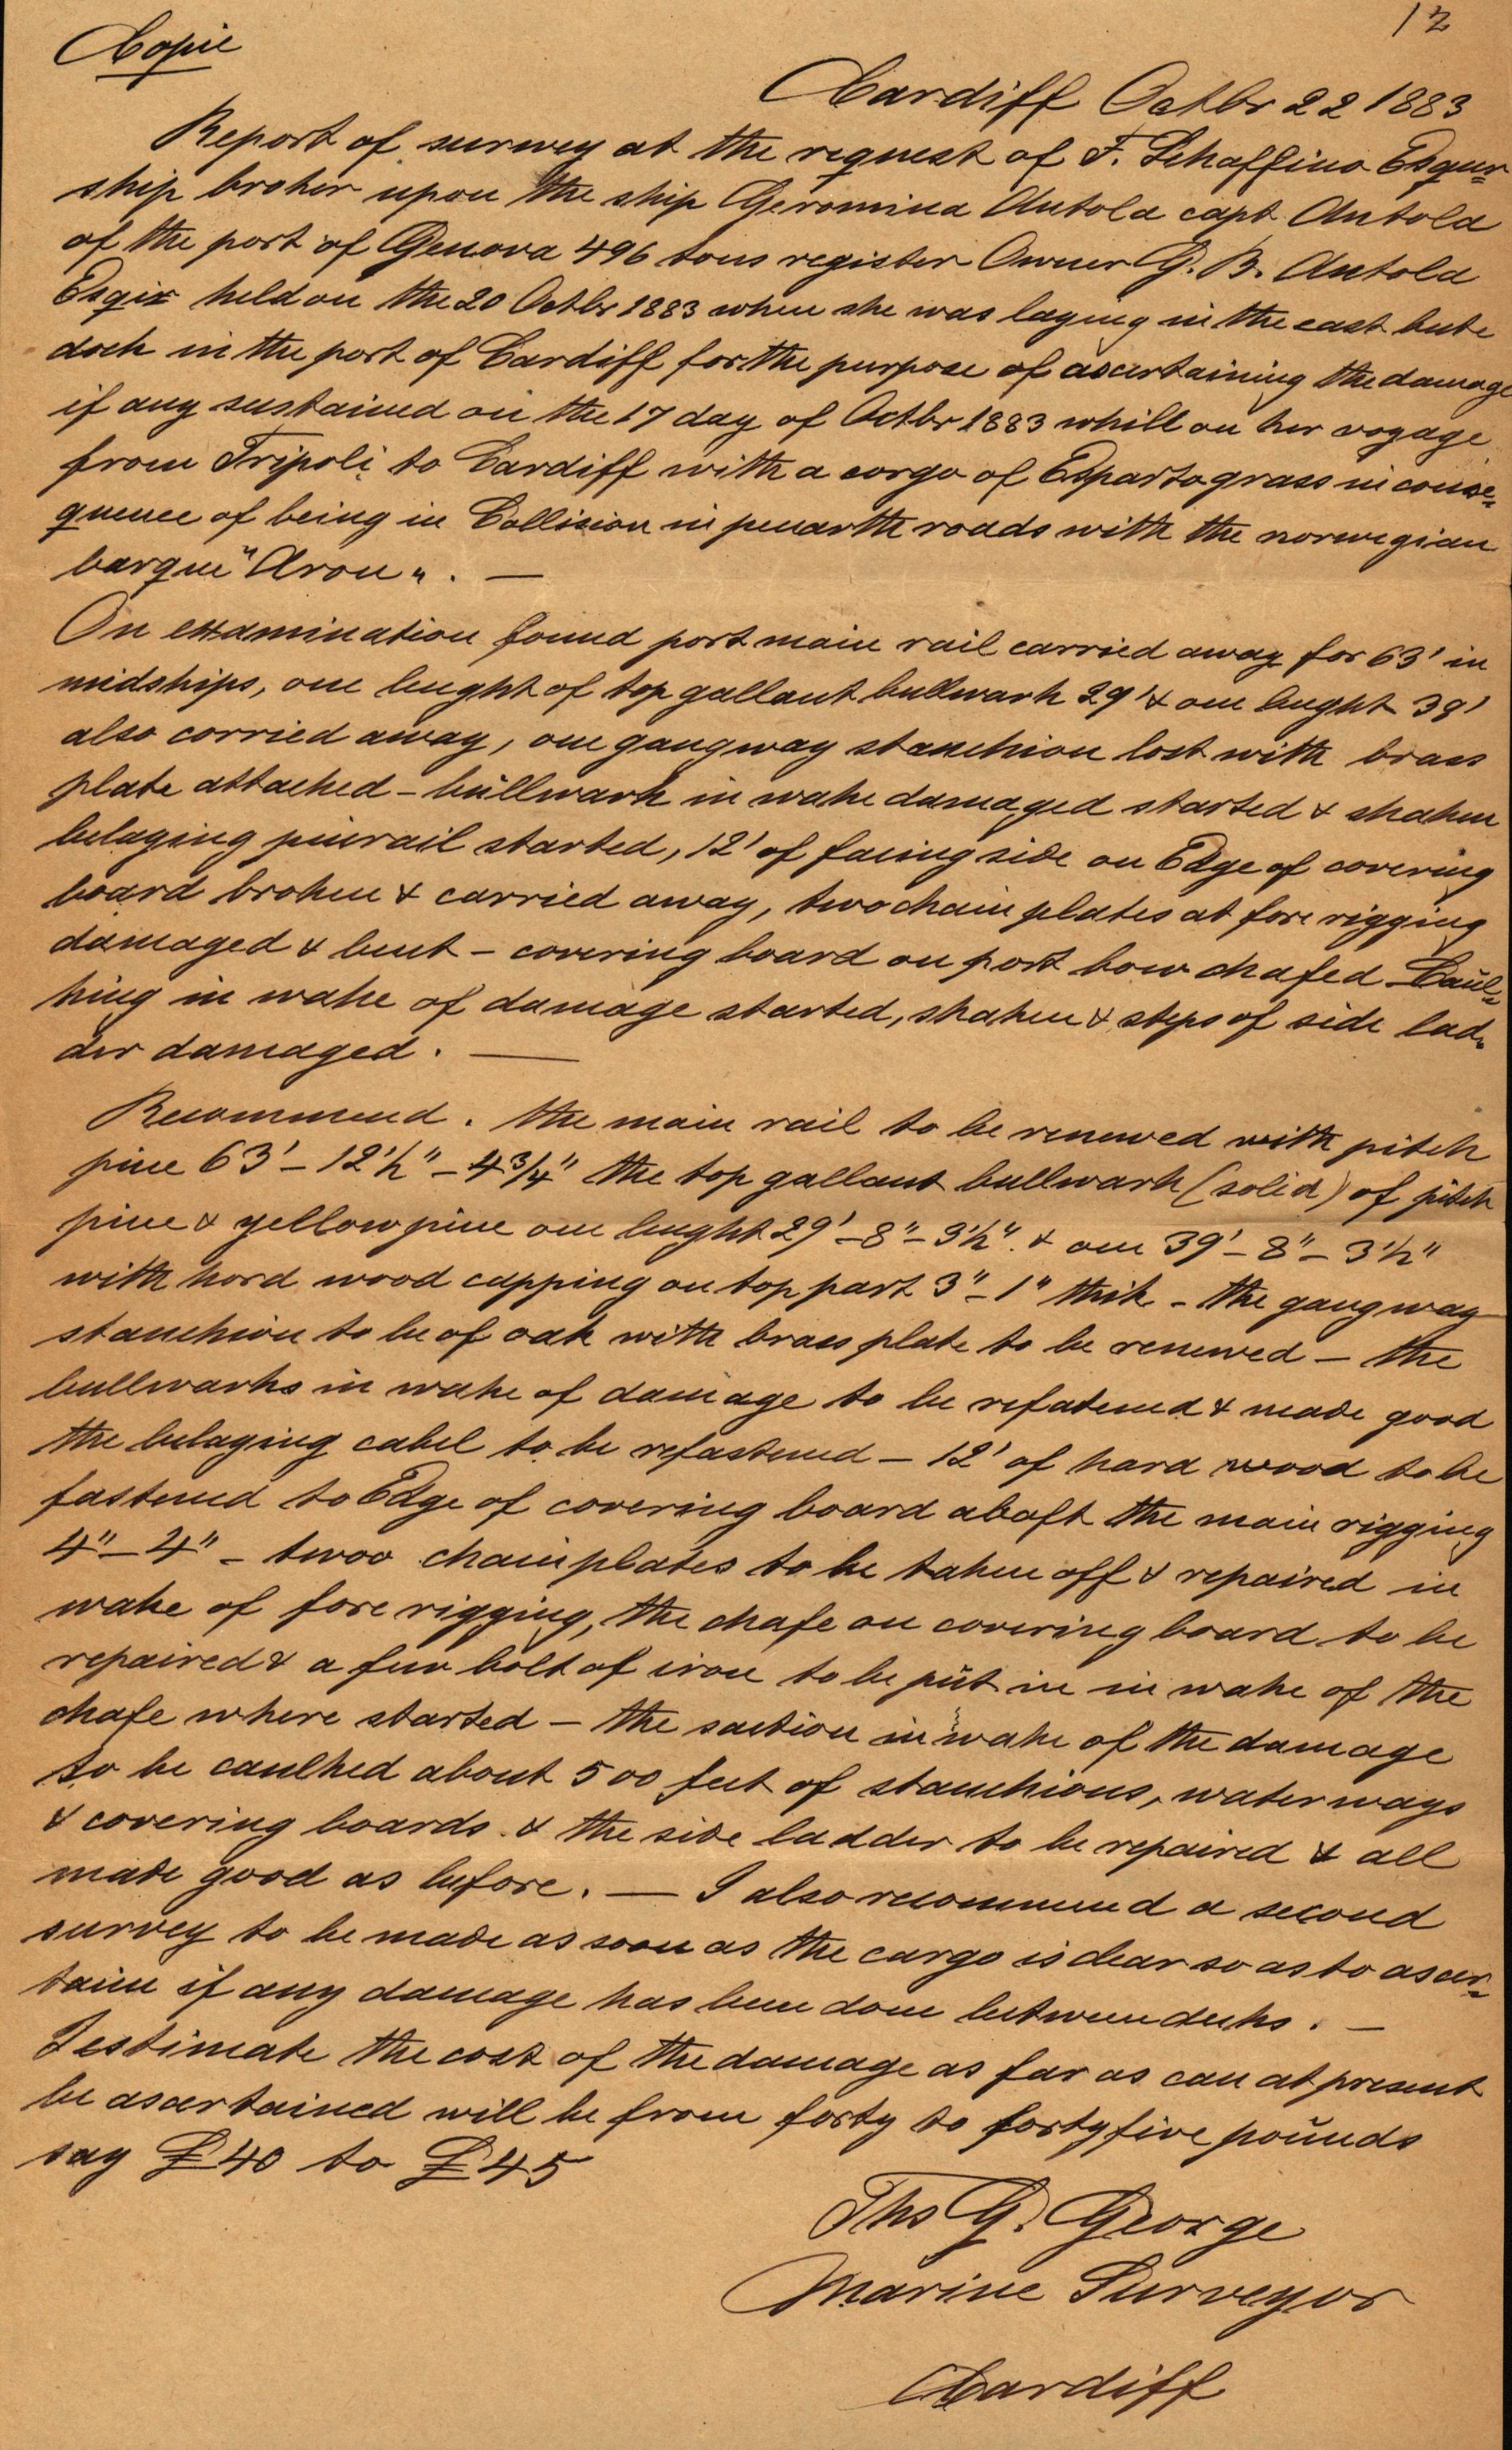 12
Copie
Cardiff Octbr 22 1883
Report of survey at the request of F. Schaffino Esqur
ship broker upon the ship Geromina Antola capt. Antola
of the port of Genova 496 tons register Owner G. B. Antola
Esqir held on the 20 Octbr 1883 when she was laying in the east bute
dock in the port of Cardiff for the purpose of ascertaining the damage
if any sustained on the 17 day of Octbr 1883 whill on her voyage
from Tripoli to Cardiff with a corgo of Esparto grass in conse-
quence of being in Collision in penarth roads with the norwegian
barque "Aron". —
On examination found port main rail carried away for 63' in
midships, one lenght of top gallant bullwark 29' & one lenght 39'
also corried away, one gangway stanchion lost with brass
plate attached – bullwark in wake damaged started & shaken
belaying pinrail started, 12' of facing side on Edge of covering
board broken & carried away, two chain plates at fore rigging
damaged & bent – covering board on port bow chafed – Caul-
king in wake of damage started, shaken & steps of side lad-
der damaged. —
Recommend. the main rail to be renewed with pitch
pine 63' – 12½" – 4¾" the top gallant bullwark (solid) of pitch
pine & yellow pine one lenght 29' – 8" – 3½" & one 39' – 8" – 3½"
with hord wood capping on top part 3" – 1" thik – the gangway
stanchion to be of oak with brass plate to be renewed – the
bullwarks in wake of damage to be refatened & made good
the belaying cabel to be refastened – 12' of hard wood to be
fastened to Edge of covering board abaft the main rigging
4" – 4" – twoo chainplates to be taken off & repaired in
wake of fore rigging, the chafe on covering board to be
repaired & a few bolt of iron to be put in in wake of the
chafe where started – the saction in wake of the damage
to be caulked about 500 feet of stanchions, waterways
& covering boards. & the side ladder to be repaired & all
made good as before. — I also recommend a second
survey to be made as soon as the cargo is clear so as to ascer-
tain if any damage has been done between decks. —
I estimate the cost of the damage as far as can at present
be ascertained will be from forty to fortyfive pounds
say £40 to £45
Ths G. George
Marine Surveyor
Cardiff